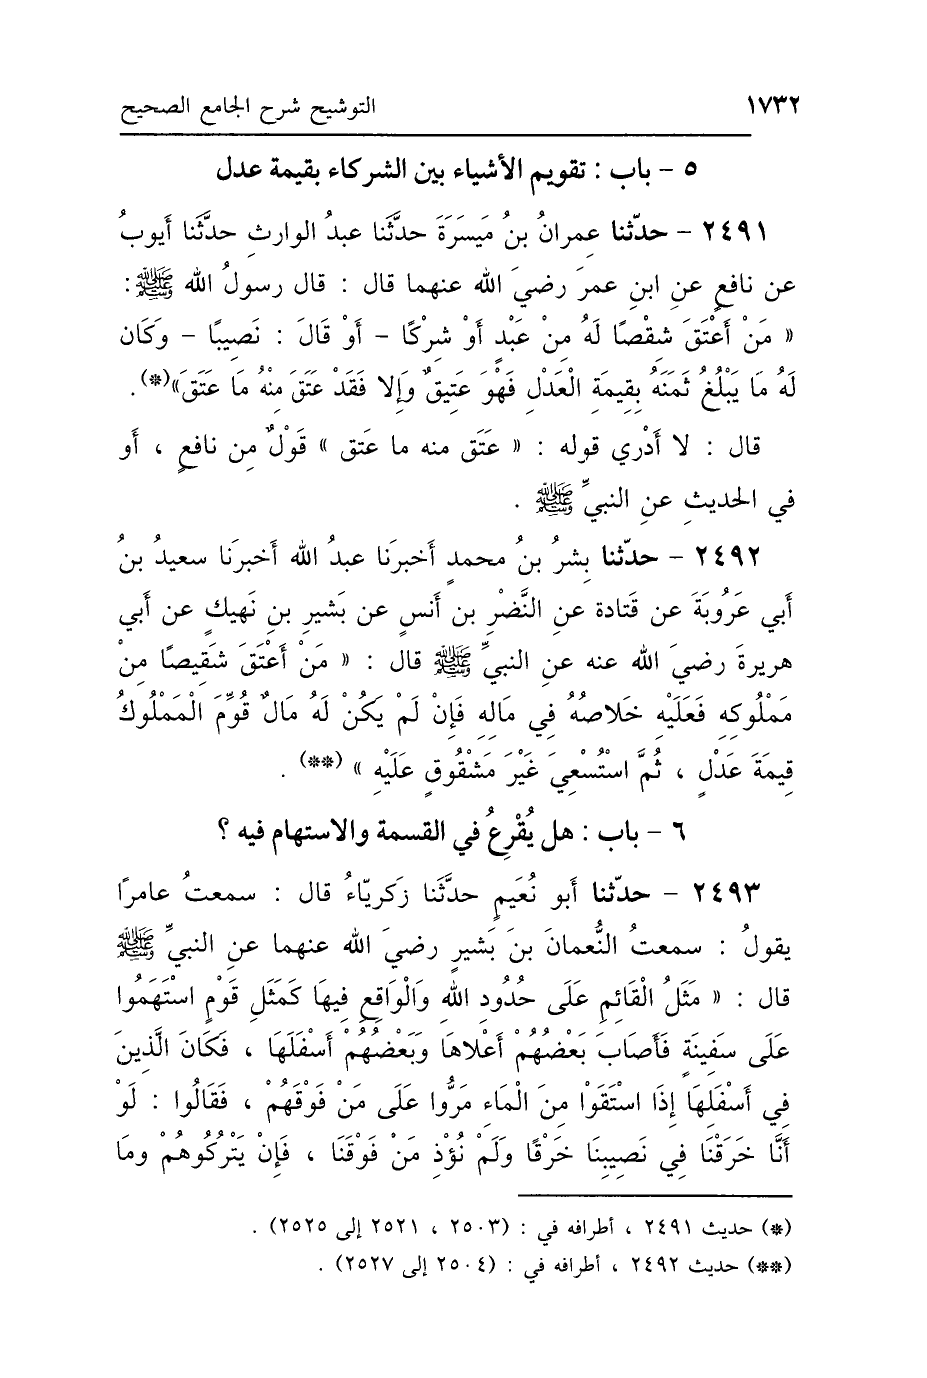 ١٧٣٢ التوشيح شرح الجامع الصحيح
٥ - باب : تقويم الأشياء بين الشركاء بقيمة عدل
٢٤٩١ - حدّثنا عمرانُ بنُ مَيسَرَةَ حدَّثَنا عبدُ الوارثِ حدَّثَنا أَيوبُ
عن نافعٍ عنِ ابنِ عمرَ رضيَ الله عنهما قال : قال رسولُ الله ﷺ :
« مَنْ أَعْتَقَ شقْصًا لَهُ مِنْ عَبْدٍ أَوْ شِرْكًا - أَوْ قَالَ : نَصِيبًا - وَكَان
لَهُ مَا يَبْلُغُ ثَمَنَهُ بِقِيمَةِ الْعَدْلِ فَهْوَ عَتِيقٌ وَإِلا فَقَدْ عَتَقَ مِنْهُ مَا عَتَقَ»(*).
قال : لا أَدْري قوله : « عَتَق منه ما عَتق » قَوْلٌ مِن نافعٍ ، أَو
في الحديثِ عنِ النبيِّ ﷺ .
٢٤٩٢ - حدّثنا بشرُ بنُ محمدٍ أَخبرَنا عبدُ الله أَخبرَنا سعيدُ بنُ
أَبي عَرُوبَةَ عن قَتادة عنِ النَّضْرِ بن أَنسٍ عن بَشيرِ بنِ نَهيكٍ عن أَبي
هريرةَ رضيَ الله عنه عنِ النبيِّ ﷺ قال : « مَنْ أَعْتَقَ شَقِيصًا مِنْ
مَمْلُوكِهِ فَعَلَيْهِ خَلاصُهُ فِي مَالِهِ فَإِنْ لَمْ يَكُنْ لَهُ مَالٌ قُوِّمَ الْمَمْلُوكُ
قِيمَةَ عَدْلٍ ، ثُمَّ اسْتُسْعِيَ غَيْرَ مَشْقُوقٍ عَلَيْهِ » (**) .
٦ - باب : هل يُقْرِعُ في القسمة والاستهام فيه ؟
٢٤٩٣ - حدّثنا أَبو نُعَيمٍ حدَّثَنا زكريّاءُ قال : سمعتُ عامرًا
يقولُ : سمعتُ النُّعمانَ بنَ بَشيرٍ رضيَ الله عنهما عنِ النبيِّ ﷺ
قال : « مَثَلُ الْقَائِمِ عَلَى حُدُودِ اللهِ وَالْوَاقِعِ فِيهَا كَمَثَلِ قَوْمٍ اسْتَهَمُوا
عَلَى سَفِينَةٍ فَأَصَابَ بَعْضُهُمْ أَعْلاهَا وَبَعْضُهُمْ أَسْفَلَهَا ، فَكَانَ الَّذِينَ
فِي أَسْفَلِهَا إِذَا اسْتَقَوْا مِنَ الْمَاءِ مَرُّوا عَلَى مَنْ فَوْقَهُمْ ، فَقَالُوا : لَوْ
أَنَّا خَرَقْنَا فِي نَصِيبِنَا خَرْقًا وَلَمْ نُؤْذِ مَنْ فَوْقَنَا ، فَإِنْ يَتْرُكُوهُمْ ومَا
(*) حديث ٢٤٩١ ، أطرافه في : (٢٥٠٣ ، ٢٥٢١ إلى ٢٥٢٥) .
(**) حديث ٢٤٩٢ ، أطرافه في : (٢٥٠٤ إلى ٢٥٢٧) .